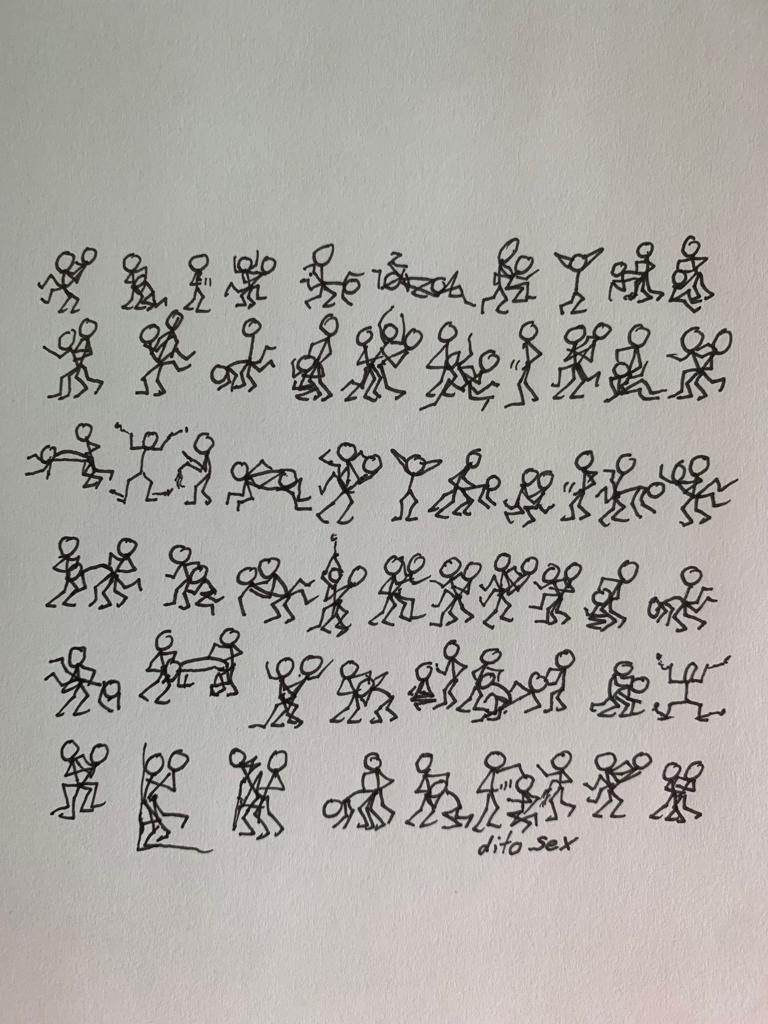 dito sex